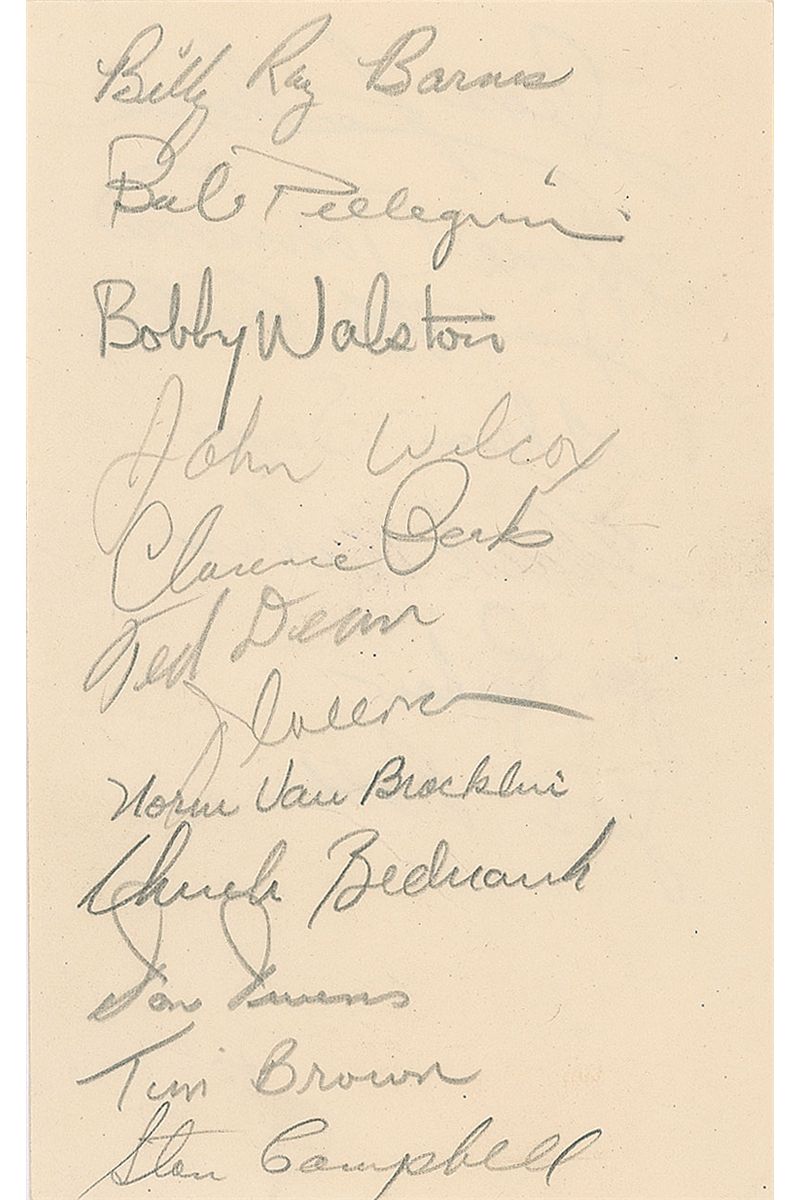 Billy Ray Barnes
Bob Pellegrini
Bobby Walston
John Wilcox
Clarence Peaks
Ted Dean
Norm Van Brocklin
Chuck Bednarik
Don Owens
Tim Brown
Stan Campbell